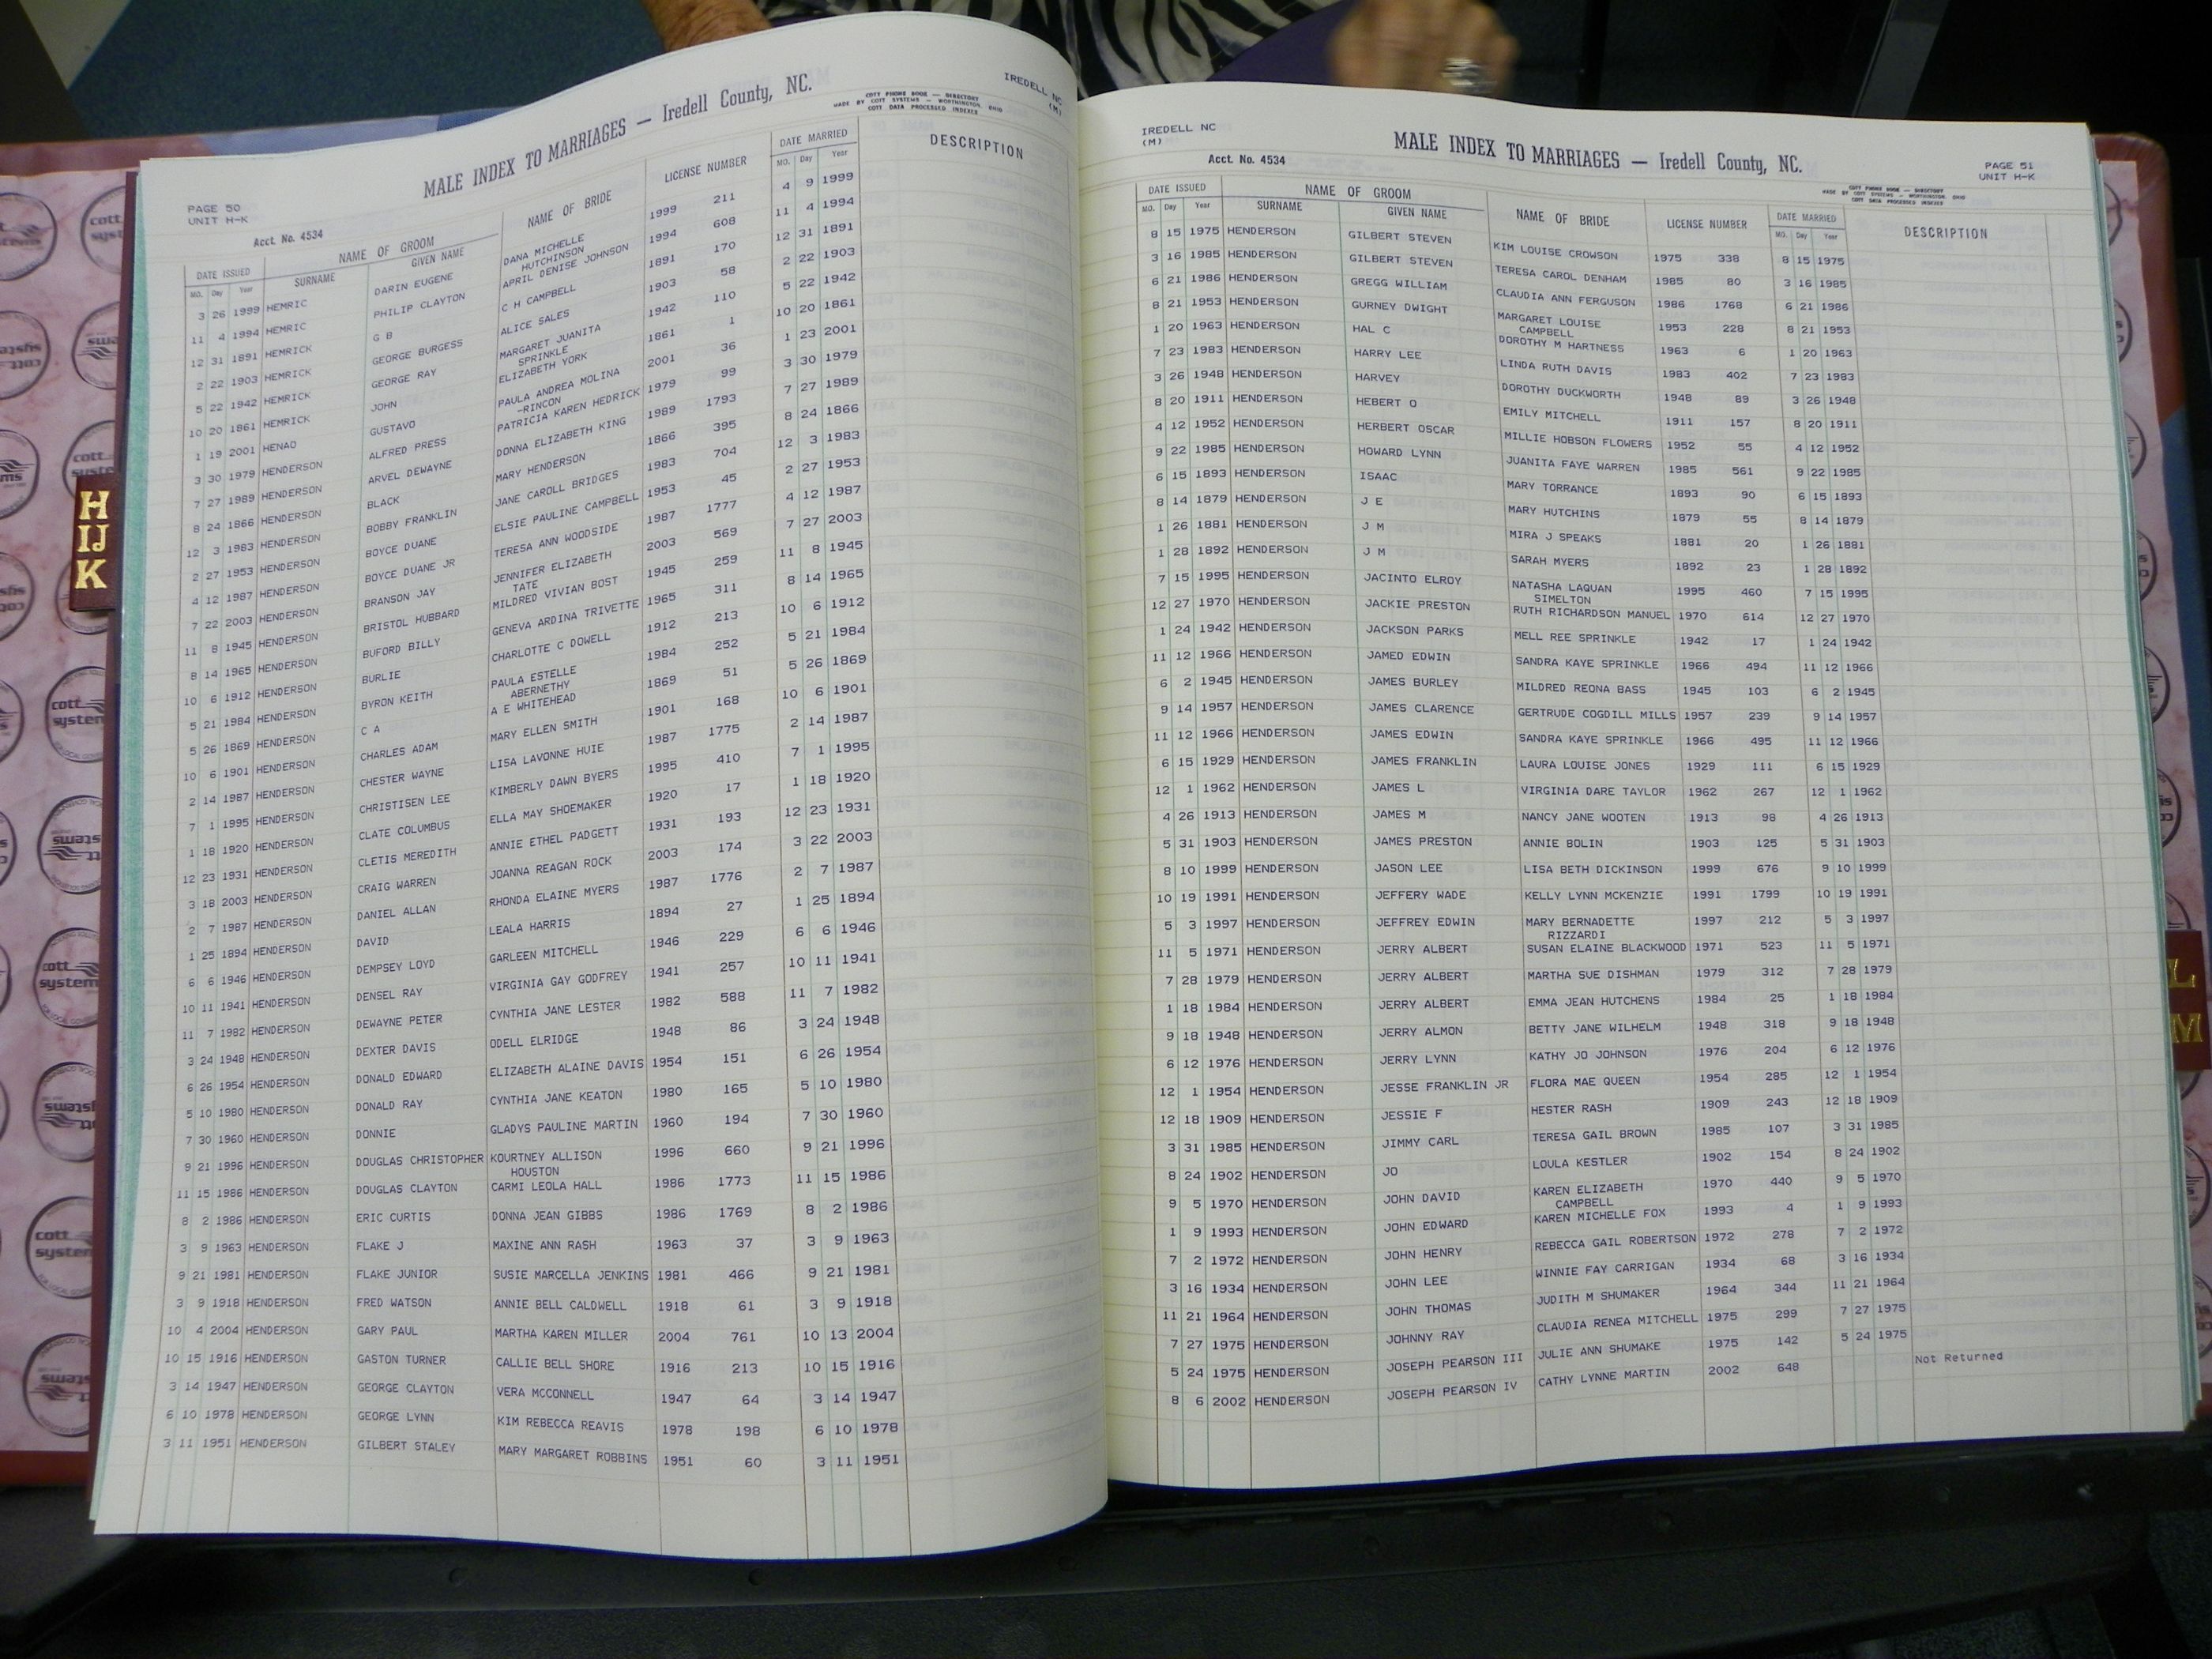 PAGE 50
UNIT H-K
MALE INDEX TO MARRIAGES — Iredell County, NC.
IREDELL NC
(M)
COTT PHONE BOOK — DIRECTORY
MADE BY COTT SYSTEMS — WORTHINGTON, OHIO
COTT DATA PROCESSED INDEXER
Acct. No. 4534
DATE ISSUED NAME OF GROOM NAME OF BRIDE LICENSE NUMBER DATE MARRIED DESCRIPTION
MO. Day Year SURNAME GIVEN NAME MO. Day Year
3 26 1999 HEMRIC DARIN EUGENE DANA MICHELLE 1999 211 4 9 1999
HUTCHINSON
11 4 1994 HEMRIC PHILIP CLAYTON APRIL DENISE JOHNSON 1994 608 11 4 1994
12 31 1891 HEMRICK G B C H CAMPBELL 1891 170 12 31 1891
2 22 1903 HEMRICK GEORGE BURGESS ALICE SALES 1903 58 2 22 1903
5 22 1942 HEMRICK GEORGE RAY MARGARET JUANITA 1942 110 5 22 1942
SPRINKLE
10 20 1861 HEMRICK JOHN ELIZABETH YORK 1861 1 10 20 1861
1 19 2001 HENAO GUSTAVO PAULA ANDREA MOLINA 2001 36 1 23 2001
-RINCON
3 30 1979 HENDERSON ALFRED PRESS PATRICIA KAREN HEDRICK 1979 99 3 30 1979
7 27 1989 HENDERSON ARVEL DEWAYNE DONNA ELIZABETH KING 1989 1793 7 27 1989
8 24 1866 HENDERSON BLACK MARY HENDERSON 1866 395 8 24 1866
12 3 1983 HENDERSON BOBBY FRANKLIN JANE CAROLL BRIDGES 1983 704 12 3 1983
2 27 1953 HENDERSON BOYCE DUANE ELSIE PAULINE CAMPBELL 1953 45 2 27 1953
4 12 1987 HENDERSON BOYCE DUANE JR TERESA ANN WOODSIDE 1987 1777 4 12 1987
7 22 2003 HENDERSON BRANSON JAY JENNIFER ELIZABETH 2003 569 7 27 2003
TATE
11 8 1945 HENDERSON BRISTOL HUBBARD MILDRED VIVIAN BOST 1945 259 11 8 1945
8 14 1965 HENDERSON BUFORD BILLY GENEVA ARDINA TRIVETTE 1965 311 8 14 1965
10 6 1912 HENDERSON BURLIE CHARLOTTE C DOWELL 1912 213 10 6 1912
5 21 1984 HENDERSON BYRON KEITH PAULA ESTELLE 1984 252 5 21 1984
ABERNETHY
5 26 1869 HENDERSON C A A E WHITEHEAD 1869 51 5 26 1869
10 6 1901 HENDERSON CHARLES ADAM MARY ELLEN SMITH 1901 168 10 6 1901
2 14 1987 HENDERSON CHESTER WAYNE LISA LAVONNE HUIE 1987 1775 2 14 1987
7 1 1995 HENDERSON CHRISTISEN LEE KIMBERLY DAWN BYERS 1995 410 7 1 1995
1 18 1920 HENDERSON CLATE COLUMBUS ELLA MAY SHOEMAKER 1920 17 1 18 1920
12 23 1931 HENDERSON CLETIS MEREDITH ANNIE ETHEL PADGETT 1931 193 12 23 1931
3 18 2003 HENDERSON CRAIG WARREN JOANNA REAGAN ROCK 2003 174 3 22 2003
2 7 1987 HENDERSON DANIEL ALLAN RHONDA ELAINE MYERS 1987 1776 2 7 1987
1 25 1894 HENDERSON DAVID LEALA HARRIS 1894 27 1 25 1894
6 6 1946 HENDERSON DEMPSEY LOYD GARLEEN MITCHELL 1946 229 6 6 1946
10 11 1941 HENDERSON DENSEL RAY VIRGINIA GAY GODFREY 1941 257 10 11 1941
11 7 1982 HENDERSON DEWAYNE PETER CYNTHIA JANE LESTER 1982 588 11 7 1982
3 24 1948 HENDERSON DEXTER DAVIS ODELL ELRIDGE 1948 86 3 24 1948
6 26 1954 HENDERSON DONALD EDWARD ELIZABETH ALAINE DAVIS 1954 151 6 26 1954
5 10 1980 HENDERSON DONALD RAY CYNTHIA JANE KEATON 1980 165 5 10 1980
7 30 1960 HENDERSON DONNIE GLADYS PAULINE MARTIN 1960 194 7 30 1960
9 21 1996 HENDERSON DOUGLAS CHRISTOPHER KOURTNEY ALLISON 1996 660 9 21 1996
HOUSTON
11 15 1986 HENDERSON DOUGLAS CLAYTON CARMI LEOLA HALL 1986 1773 11 15 1986
8 2 1986 HENDERSON ERIC CURTIS DONNA JEAN GIBBS 1986 1769 8 2 1986
3 9 1963 HENDERSON FLAKE J MAXINE ANN RASH 1963 37 3 9 1963
9 21 1981 HENDERSON FLAKE JUNIOR SUSIE MARCELLA JENKINS 1981 466 9 21 1981
3 9 1918 HENDERSON FRED WATSON ANNIE BELL CALDWELL 1918 61 3 9 1918
10 4 2004 HENDERSON GARY PAUL MARTHA KAREN MILLER 2004 761 10 13 2004
10 15 1916 HENDERSON GASTON TURNER CALLIE BELL SHORE 1916 213 10 15 1916
3 14 1947 HENDERSON GEORGE CLAYTON VERA MCCONNELL 1947 64 3 14 1947
6 10 1978 HENDERSON GEORGE LYNN KIM REBECCA REAVIS 1978 198 6 10 1978
3 11 1951 HENDERSON GILBERT STALEY MARY MARGARET ROBBINS 1951 60 3 11 1951
IREDELL NC
(M)
MALE INDEX TO MARRIAGES — Iredell County, NC.
PAGE 51
UNIT H-K
Acct. No. 4534
COTT PHONE BOOK — DIRECTORY
MADE BY COTT SYSTEMS — WORTHINGTON, OHIO
COTT DATA PROCESSED INDEXER
DATE ISSUED NAME OF GROOM NAME OF BRIDE LICENSE NUMBER DATE MARRIED DESCRIPTION
MO. Day Year SURNAME GIVEN NAME MO. Day Year
8 15 1975 HENDERSON GILBERT STEVEN KIM LOUISE CROWSON 1975 338 8 15 1975
3 16 1985 HENDERSON GILBERT STEVEN TERESA CAROL DENHAM 1985 80 3 16 1985
6 21 1986 HENDERSON GREGG WILLIAM CLAUDIA ANN FERGUSON 1986 1768 6 21 1986
8 21 1953 HENDERSON GURNEY DWIGHT MARGARET LOUISE 1953 228 8 21 1953
CAMPBELL
1 20 1963 HENDERSON HAL C DOROTHY M HARTNESS 1963 6 1 20 1963
7 23 1983 HENDERSON HARRY LEE LINDA RUTH DAVIS 1983 402 7 23 1983
3 26 1948 HENDERSON HARVEY DOROTHY DUCKWORTH 1948 89 3 26 1948
8 20 1911 HENDERSON HEBERT O EMILY MITCHELL 1911 157 8 20 1911
4 12 1952 HENDERSON HERBERT OSCAR MILLIE HOBSON FLOWERS 1952 55 4 12 1952
9 22 1985 HENDERSON HOWARD LYNN JUANITA FAYE WARREN 1985 561 9 22 1985
6 15 1893 HENDERSON ISAAC MARY TORRANCE 1893 90 6 15 1893
8 14 1879 HENDERSON J E MARY HUTCHINS 1879 55 8 14 1879
1 26 1881 HENDERSON J M MIRA J SPEAKS 1881 20 1 26 1881
1 28 1892 HENDERSON J M SARAH MYERS 1892 23 1 28 1892
7 15 1995 HENDERSON JACINTO ELROY NATASHA LAQUAN 1995 460 7 15 1995
SIMELTON
12 27 1970 HENDERSON JACKIE PRESTON RUTH RICHARDSON MANUEL 1970 614 12 27 1970
1 24 1942 HENDERSON JACKSON PARKS MELL REE SPRINKLE 1942 17 1 24 1942
11 12 1966 HENDERSON JAMED EDWIN SANDRA KAYE SPRINKLE 1966 494 11 12 1966
6 2 1945 HENDERSON JAMES BURLEY MILDRED REONA BASS 1945 103 6 2 1945
9 14 1957 HENDERSON JAMES CLARENCE GERTRUDE COGDILL MILLS 1957 239 9 14 1957
11 12 1966 HENDERSON JAMES EDWIN SANDRA KAYE SPRINKLE 1966 495 11 12 1966
6 15 1929 HENDERSON JAMES FRANKLIN LAURA LOUISE JONES 1929 111 6 15 1929
12 1 1962 HENDERSON JAMES L VIRGINIA DARE TAYLOR 1962 267 12 1 1962
4 26 1913 HENDERSON JAMES M NANCY JANE WOOTEN 1913 98 4 26 1913
5 31 1903 HENDERSON JAMES PRESTON ANNIE BOLIN 1903 125 5 31 1903
8 10 1999 HENDERSON JASON LEE LISA BETH DICKINSON 1999 676 9 10 1999
10 19 1991 HENDERSON JEFFERY WADE KELLY LYNN MCKENZIE 1991 1799 10 19 1991
5 3 1997 HENDERSON JEFFREY EDWIN MARY BERNADETTE 1997 212 5 3 1997
RIZZARDI
11 5 1971 HENDERSON JERRY ALBERT SUSAN ELAINE BLACKWOOD 1971 523 11 5 1971
7 28 1979 HENDERSON JERRY ALBERT MARTHA SUE DISHMAN 1979 312 7 28 1979
1 18 1984 HENDERSON JERRY ALBERT EMMA JEAN HUTCHENS 1984 25 1 18 1984
9 18 1948 HENDERSON JERRY ALMON BETTY JANE WILHELM 1948 318 9 18 1948
6 12 1976 HENDERSON JERRY LYNN KATHY JO JOHNSON 1976 204 6 12 1976
12 1 1954 HENDERSON JESSE FRANKLIN JR FLORA MAE QUEEN 1954 285 12 1 1954
12 18 1909 HENDERSON JESSIE F HESTER RASH 1909 243 12 18 1909
3 31 1985 HENDERSON JIMMY CARL TERESA GAIL BROWN 1985 107 3 31 1985
8 24 1902 HENDERSON JO LOULA KESTLER 1902 154 8 24 1902
9 5 1970 HENDERSON JOHN DAVID KAREN ELIZABETH 1970 440 9 5 1970
CAMPBELL
1 9 1993 HENDERSON JOHN EDWARD KAREN MICHELLE FOX 1993 4 1 9 1993
7 2 1972 HENDERSON JOHN HENRY REBECCA GAIL ROBERTSON 1972 278 7 2 1972
3 16 1934 HENDERSON JOHN LEE WINNIE FAY CARRIGAN 1934 68 3 16 1934
11 21 1964 HENDERSON JOHN THOMAS JUDITH M SHUMAKER 1964 344 11 21 1964
7 27 1975 HENDERSON JOHNNY RAY CLAUDIA RENEA MITCHELL 1975 299 7 27 1975
5 24 1975 HENDERSON JOSEPH PEARSON III JULIE ANN SHUMAKE 1975 142 5 24 1975
8 6 2002 HENDERSON JOSEPH PEARSON IV CATHY LYNNE MARTIN 2002 648 Not Returned
H
IJ
K
L
M
cott
systems